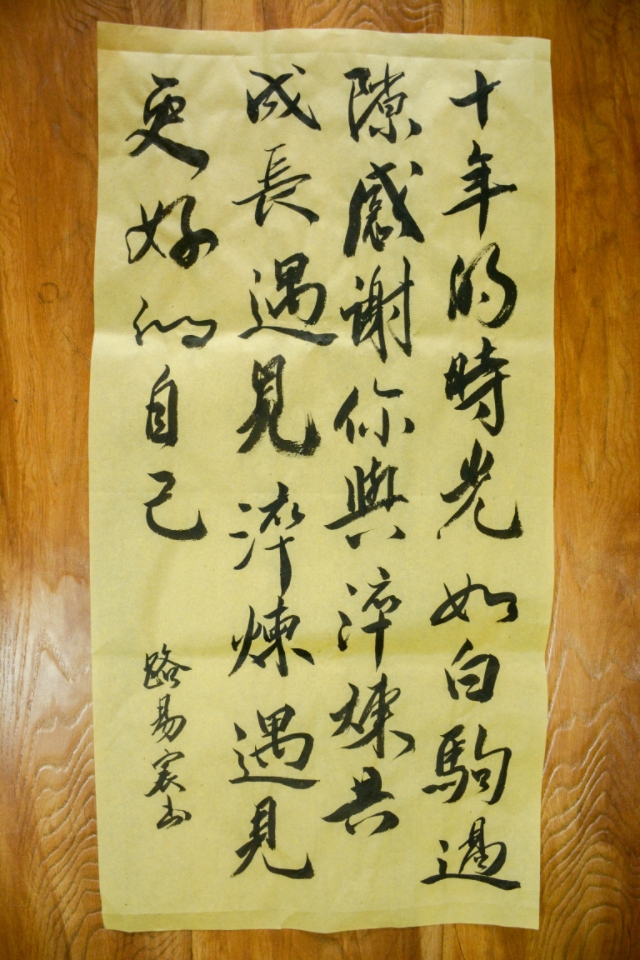 十年的時光如白駒過
隙感謝你與淬煉共
成長遇見淬煉遇見
更好的自己
路易宸书